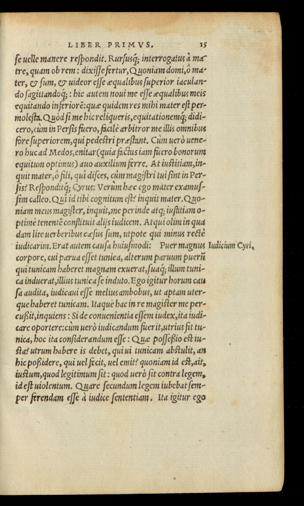 LIBER PRIMVS. 15
se uelle manere respondit. Rursusq́; interrogatus à ma-
tre, quam ob rem: dixisse fertur, Quoniam domi, ô ma-
ter, & sum, & uideor esse æqualibus superior iaculan-
do sagittandoq́;: hic autem noui me esse æqualibus meis
equitando inferiorē: quæ quidem res mihi mater est per-
molesta. Quòd si me hic reliqueris, equitationemq́; didi-
cero, cùm in Persis fuero, facilè arbitror me illis omnibus
fore superiorem, qui pedestri præstant. Cùm uerò uene-
ro huc ad Medos, enitar (quia factus iam fuero bonorum
equitum optimus) auo auxilium ferre. At iustitiam, in-
quit mater, ô fili, quî disces, cùm magistri tui sint in Per-
sis? Responditq́; Cyrus: Verùm hæc ego mater examus-
sim calleo. Quî id tibi cognitum est? inquit mater. Quo-
niam meus magister, inquit, me perinde atq; iustitiam o-
ptimè tenentē constituit alijs iudicem. Atqui olim in qua
dam lite uerberibus cæsus sum, utpote qui minus rectè
iudicarim. Erat autem causa huiusmodi: Puer magnus Iudicium Cyri.
corpore, cui parua esset tunica, alterum paruum puerū
qui tunicam haberet magnam exuerat, suaq́; illum tuni-
ca induerat, illius tunica se induto. Ego igitur horum cau
sa audita, iudicaui esse melius ambobus, ut aptam uter-
que haberet tunicam. Itaque hac in re magister me per-
cußit, inquiens: Si de conuenientia essem iudex, ita iudi-
care oportere: cùm uerò iudicandum fuerit, utrius sit tu-
nica, hoc ita considerandum esse: Quæ possessio est iu-
sta? utrum habere is debet, qui ui tunicam abstulit, an
hic poßidere, qui uel fecit, uel emit? quoniam id est, ait,
iustum, quod legitimum sit: quod uerò sit contra legem,
id est uiolentum. Quare secundum legem iubebat sem-
per ferendam esse à iudice sententiam. Ita igitur ego